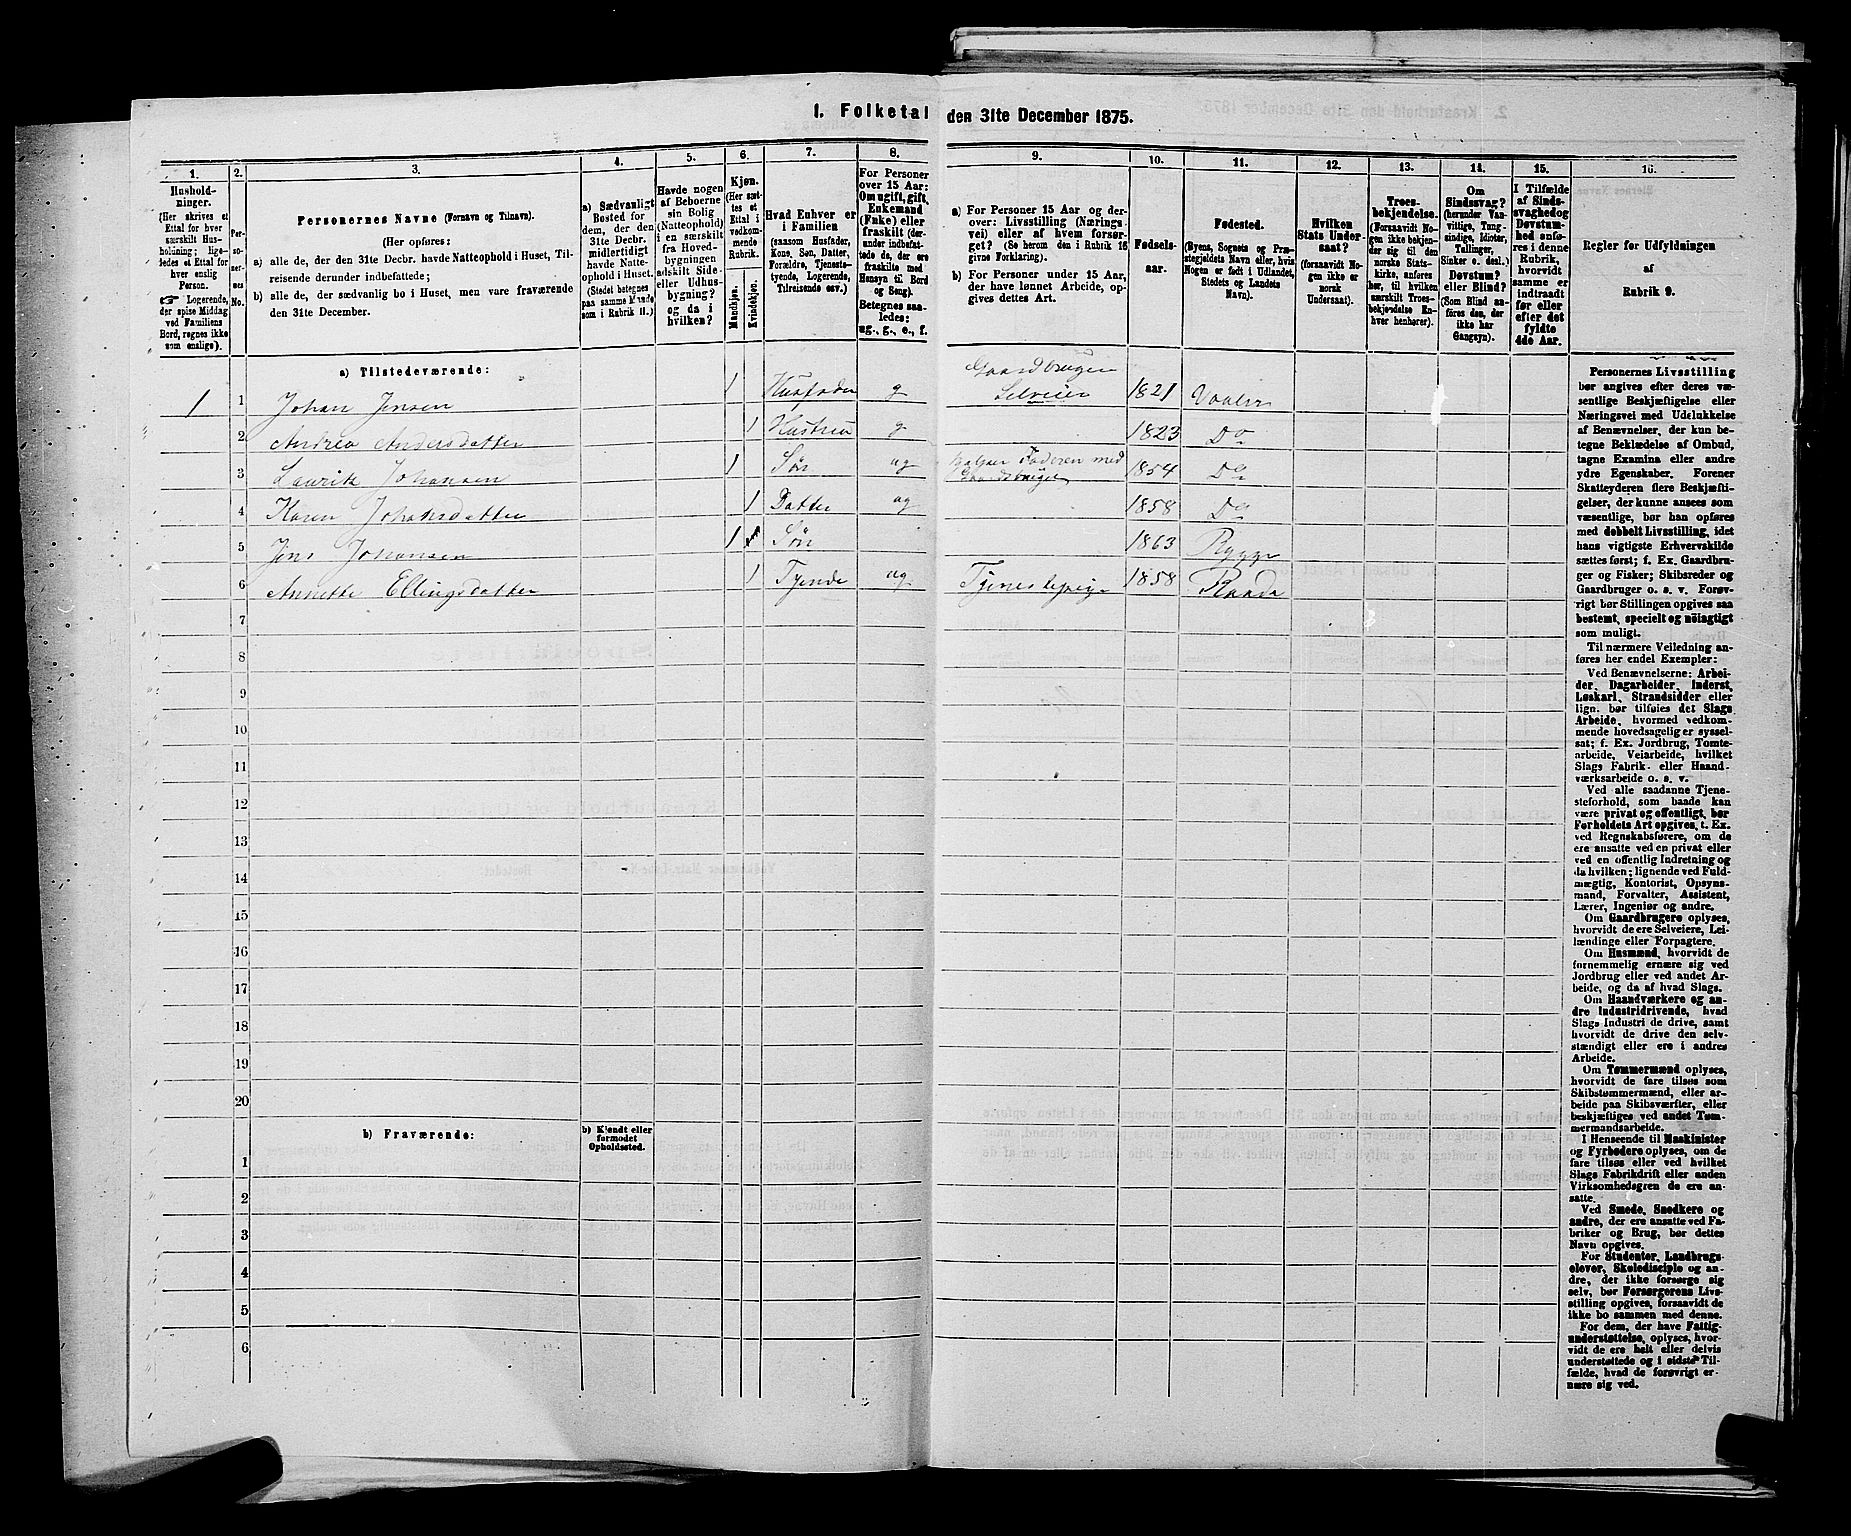 1. Folketal den 31te December 1875.
1.
2.
3.
4.
5.
6.
7.
8.
9.
10.
11.
12.
13.
14.
15.
16.
Hushold-
ninger.
(Her skrives et
Ettal for hver
særskilt Hus-
holdning; lige-
ledes et Ettal for
hver enslig
Person.
☞ Logerende,
der spise Middag
ved Familiens
Bord, regnes ikke
som enslige).
Per-
so-
ner-
nes
No.
Personernes Navne (Fornavn og Tilnavn).
(Her opføres:
a) alle de, der den 31te Decbr. havde Natteophold i Huset, Til-
reisende derunder indbefattede;
b) alle de, der sædvanlig bo i Huset, men vare fraværende
den 31te December.
a) Sædvanligt
Bosted for
dem, der den
31te Decbr.
midlertidigt
havde Natte-
ophold i Huset.
(Stedet betegnes
paa samme Maade
som i Rubrik 11.)
Havde nogen
af Beboerne
sin Bolig
(Natteophold)
i en særskilt
fra Hoved-
bygningen
adskilt Side-
eller Udhus-
bygning?
og da i
hvilken?
Kjøn.
(Her sæt-
tes et
Ettal i
vedkom-
mende
Rubrik.
Mandkjøn.
Kvindekjøn.
Hvad Enhver er
i Familien
(saasom Husfader,
Kone, Søn, Datter,
Forældre, Tjeneste-
tyende, Logerende,
Tilreisende osv.)
For Personer
over 15 Aar:
Om ugift, gift,
Enkemand
(Enke) eller
fraskilt (der-
under indbefat-
tede de, der ere
fraskilte med
Hensyn til Bord
og Seng).
Betegnes saa-
ledes:
ug., g., e., f.
a) For Personer 15 Aar og der-
over: Livsstilling (Nærings-
vei) eller af hvem forsør-
get? (Se herom den i Rubrik 16
givne Forklaring).
b) For Personer under 15 Aar,
der have lønnet Arbeide, op-
gives dettes Art.
Fødsels-
aar.
Fødested.
(Byens, Sognets og Præ-
stegjeldets Navn eller, hvis
Nogen er født i Udlandet,
Stedets og Landets
Navn).
Hvilken
Stats Under-
saat?
(forsaavidt No-
gen ikke er
norsk
Undersaat).
Troes-
bekjendelse.
(Forsaavidt No-
gen ikke bekjen-
der sig til den
norske Stats-
kirke, anføres
her, til hvilken
særskilt Troes-
bekjendelse En-
hver henhører).
Om
Sindssvag?
(herunder Van-
vittige, Tung-
sindige, Idioter,
Tullinger,
Sinker o. desl.)
Døvstum?
eller Blind?
(Som Blind an-
føres den, der
ikke har
Gangsyn).
I Tilfælde
af Sinds-
svaghed og
Døvstum-
hed anfø-
res i denne
Rubrik,
hvorvidt
samme er
indtraadt
før eller
efter det
fyldte
4de Aar.
Regler før Udfyldningen
af
Rubrik 9.
a) Tilstedeværende:
1 1 Johan Jensen 1 Husfader g Gaardbruger
Selveier 1821 Vaaler
2 Andrea Andersdatter 1 Hustru g 1823 Do
3 Laurits Johansen 1 Søn ug Hjælper Faderen med
Gaardsbruget 1854 Do
4 Karen Johansdatter 1 Datter ug 1858 Do
5 Jens Johansen 1 Søn 1863 Rygge
6 Annette Ellingsdatter 1 Tyende ug Tjenestepige 1858 Raade
7
8
9
10
11
12
13
14
15
16
17
18
19
20
b) Fraværende:
b) Kjendt eller
formodet
Opholdssted.
1
2
3
4
5
6
Personernes Livsstilling
bør angives efter deres væ-
sentlige Beskjæftigelse eller
Næringsvei med Udelukkelse
af Benævnelser, der kun be-
tegne Beklædelse af Ombud,
tagne Examina eller andre
ydre Egenskaber. Forener
Skatteyderen flere Beskjæfti-
gelser, der kunne ansees som
væsentlige, bør han opføres
med dobbelt Livsstilling, idet
hans vigtigste Erhvervskilde
sættes først; f. Ex. Gaardbru-
ger og Fisker; Skibsreder og
Gaardbruger o. s. v. Forøv-
rigt bør Stillingen opgives saa
bestemt, specielt og nøiagtigt
som muligt.
Til nærmere Veiledning an-
føres her endel Exempler:
Ved Benævnelserne: Arbei-
der, Dagarbeider, Inderst,
Løskarl, Strandsidder eller
lign. bør tilføies det Slags
Arbeide, hvormed vedkom-
mende hovedsagelig er syssel-
sat; f. Ex. Jordbrug, Tomte-
arbeide, Veiarbeide, hvilket
Slags Fabrik- eller Haand-
værksarbeide o. s. v.
Ved alle saadanne Tjene-
steforhold, som baade kan
være privat og offentligt, bør
Forholdets Art opgives, t. Ex.
ved Regnskabsførere, om de
ere ansatte ved en privat eller
ved en offentlig Indretning og
da hvilken; lignende ved Fuld-
mægtig, Kontorist, Opsyns-
mand, Forvalter, Assistent,
Lærer, Ingeniør og andre.
Om Gaardbrugere oplyses,
hvorvidt de ere Selveiere, Lei-
lændinge eller Forpagtere.
Om Husmænd, hvorvidt de
fornemmelig ernære sig ved
Jordbrug eller ved andet Ar-
beide, og da af hvad Slags.
Om Haandværkere og an-
dre Industridrivende, hvad
Slags Industri de drive, samt
hvorvidt de drive den selv-
stændigt eller ere i andres
Arbeide.
Om Tømmermænd oplyses,
hvorvidt de fare tilsøs som
Skibstømmermænd, eller ar-
beide paa Skibsværfter, eller
beskjæftiges ved andet Tøm-
mermandsarbeide.
I Henseende til Maskinister
og Fyrbødere oplyses, om de
fare tilsøs eller ved hvilket
Slags Fabrikdrift eller anden
Virksomhedsgren de ere an-
satte.
Ved Smede, Snedkere og
andre, der ere ansatte ved Fa-
briker og Brug, bør dettes
Navn opgives.
For Studenter, Landbrugs-
elever, Skoledisciple og an-
dre, der ikke forsørge sig
selv, bør Forsørgerens Livs-
stilling opgives, forsaavidt de
ikke bo sammen med denne.
For dem, der have Fattig-
understøttelse, oplyses, hvor-
vidt de ere helt eller delvis
understøttede og i sidste Til-
fælde, hvad de forøvrigt er-
nære sig ved.